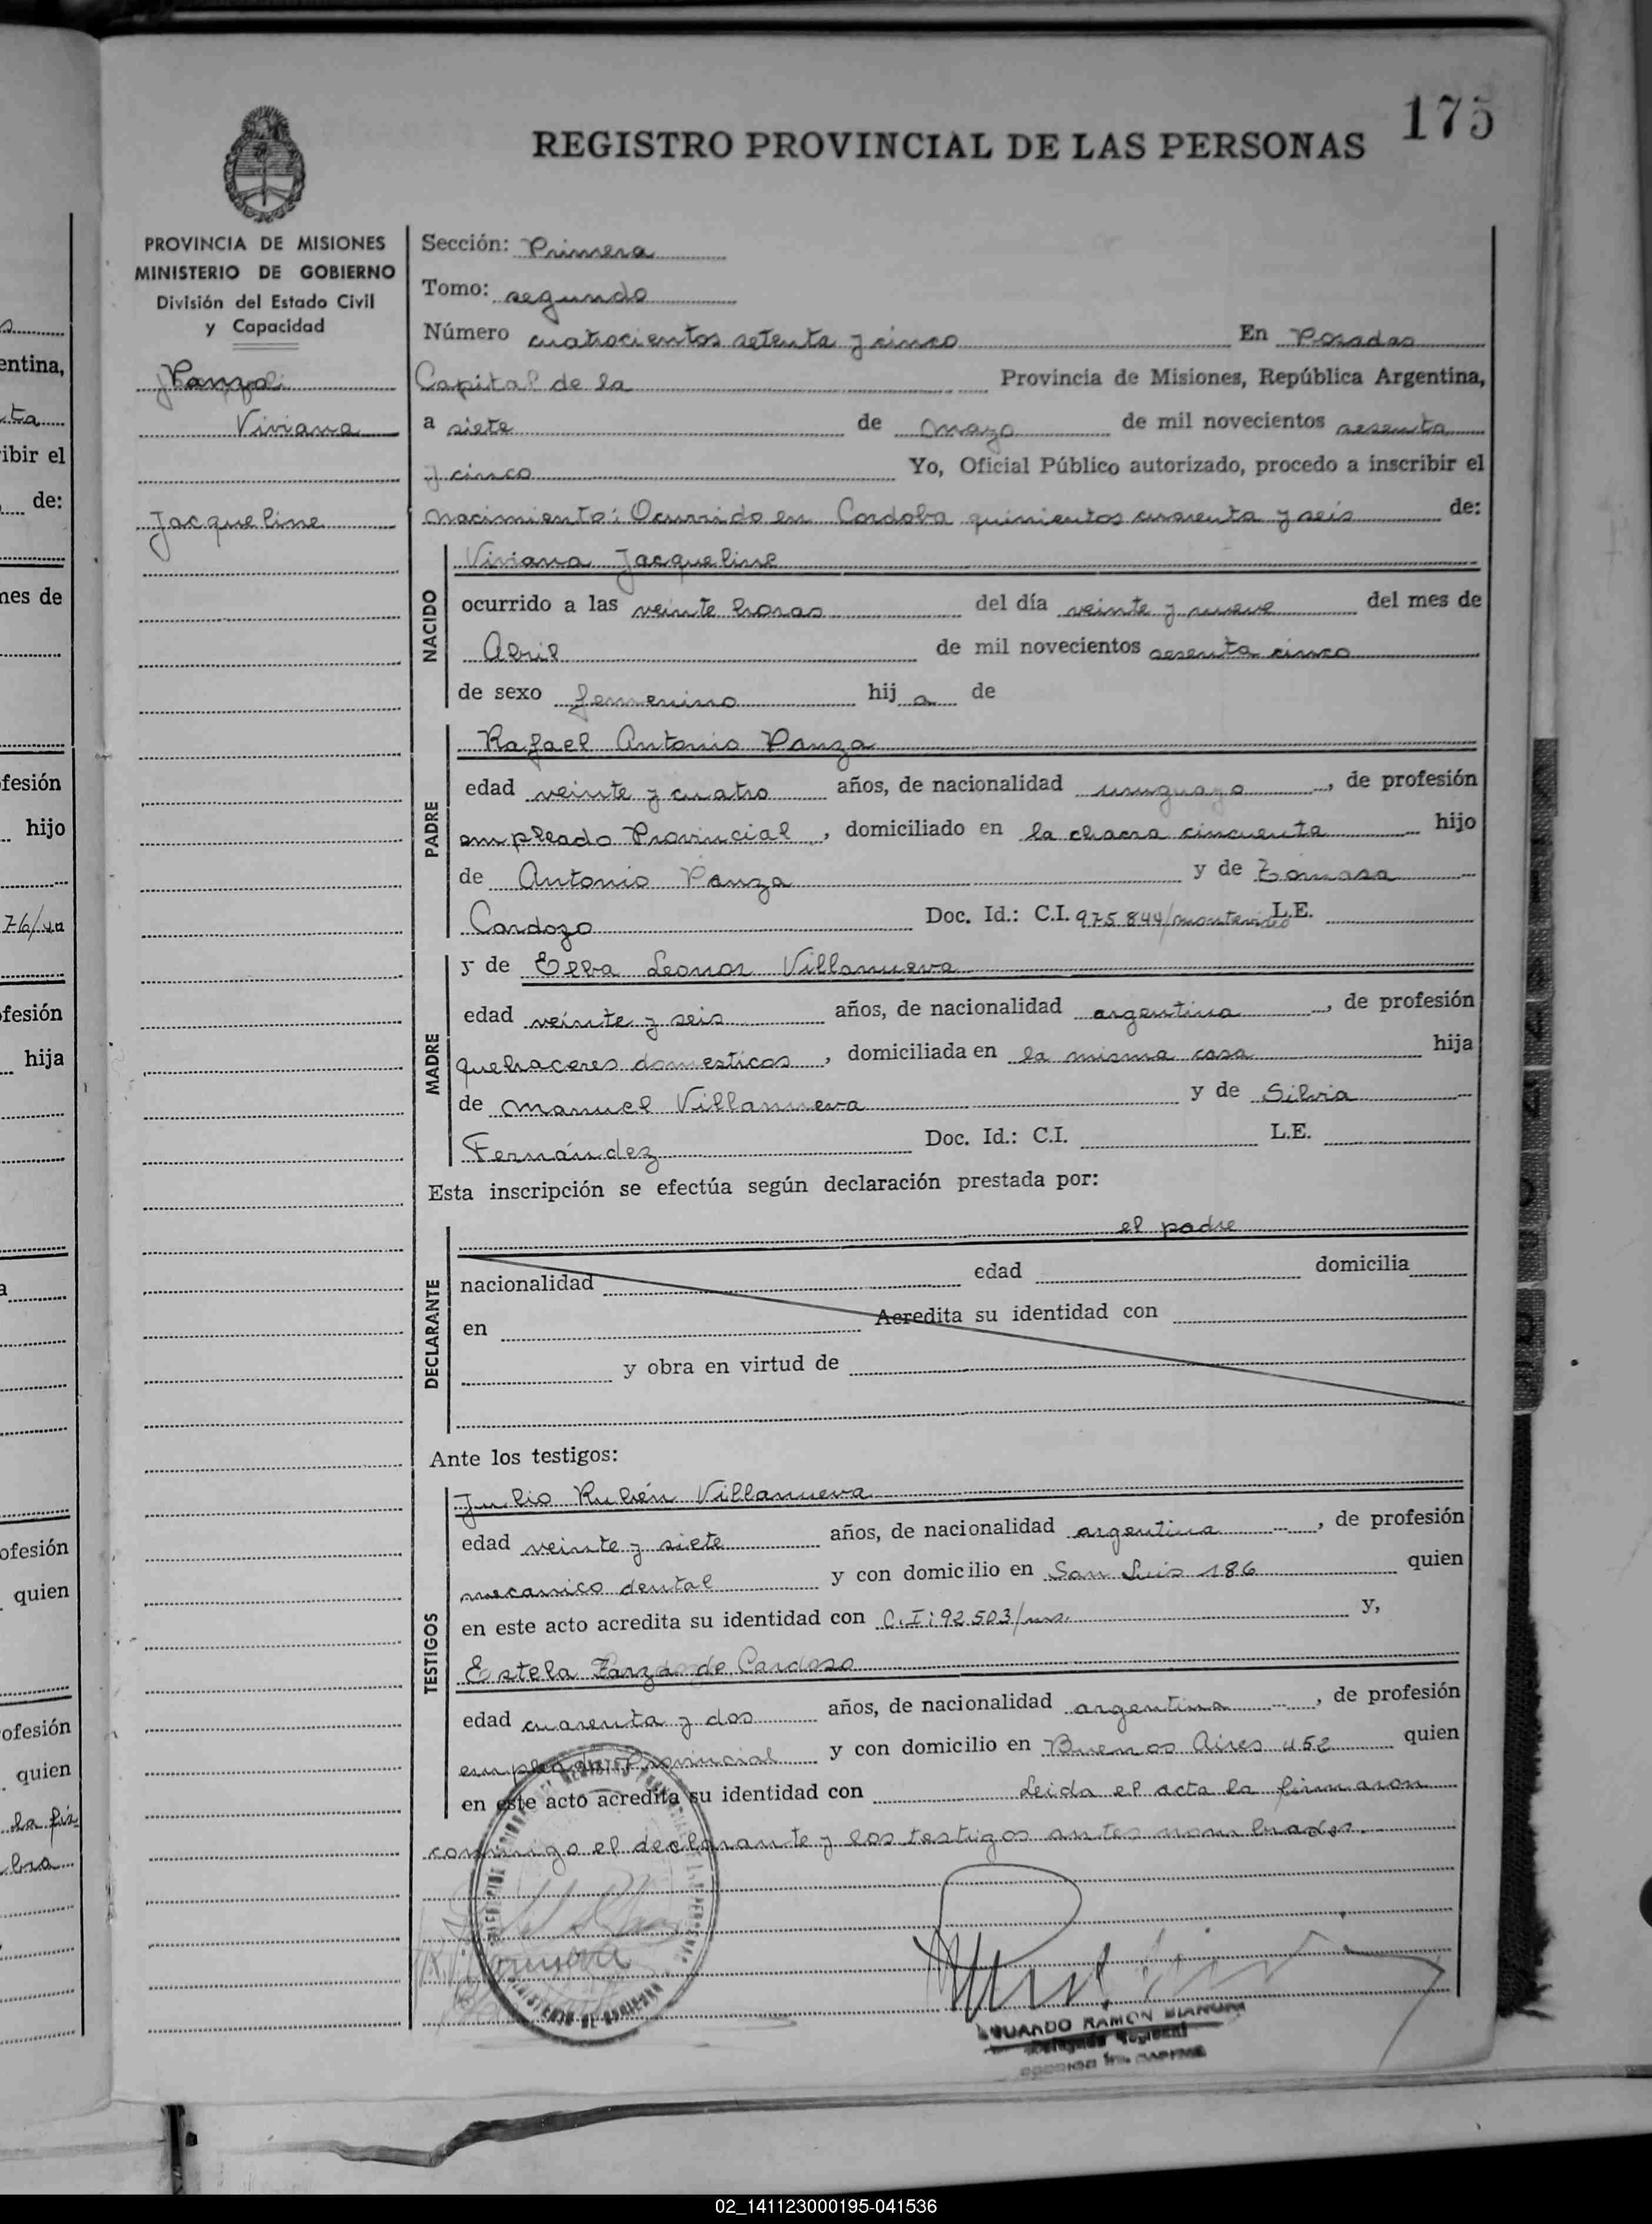 175
REGISTRO PROVINCIAL DE LAS PERSONAS
PROVINCIA DE MISIONES
MINISTERIO DE GOBIERNO
División del Estado Civil
y Capacidad
Panza
Viviana
Jacqueline
Sección: Primera
Tomo: segundo
Número cuatrocientos setenta y cinco En Posadas
Capital de la Provincia de Misiones, República Argentina,
a siete de mayo de mil novecientos sesenta
y cinco Yo, Oficial Público autorizado, procedo a inscribir el
nacimiento: Ocurrido en Cordoba quinientos cuarenta y seis de:
NACIDO
Viviana Jacqueline
ocurrido a las veinte horas del día veinte y nueve del mes de
Abril de mil novecientos sesenta cinco
de sexo femenino hij a de
PADRE
Rafael Antonio Panza
edad veinte y cuatro años, de nacionalidad uruguayo, de profesión
empleado Provincial, domiciliado en la chacra cincuenta hijo
de Antonio Panza y de Tomasa
Cardozo Doc. Id.: C.I. 975.844/montevideo L.E.
MADRE
y de Elba Leonor Villanueva
edad veinte y seis años, de nacionalidad argentina, de profesión
quehaceres domesticos, domiciliada en la misma casa hija
de Manuel Villanueva y de Silvia
Fernández Doc. Id.: C.I. L.E.
Esta inscripción se efectúa según declaración prestada por:
el padre
DECLARANTE
nacionalidad edad domicilia
en Acredita su identidad con
y obra en virtud de
Ante los testigos:
TESTIGOS
Julio Rubén Villanueva
edad veinte y siete años, de nacionalidad argentina, de profesión
mecanico dental y con domicilio en San Luis 186 quien
en este acto acredita su identidad con C.I: 92.503/ms. y,
Estela de Cardozo
edad cuarenta y dos años, de nacionalidad argentina, de profesión
Provincial y con domicilio en Buenos Aires 452 quien
en este acto acredita su identidad con Leida el acta la firmaron
conmigo el declarante y los testigos antes nombrados.
RAMON
02_141123000195-041536